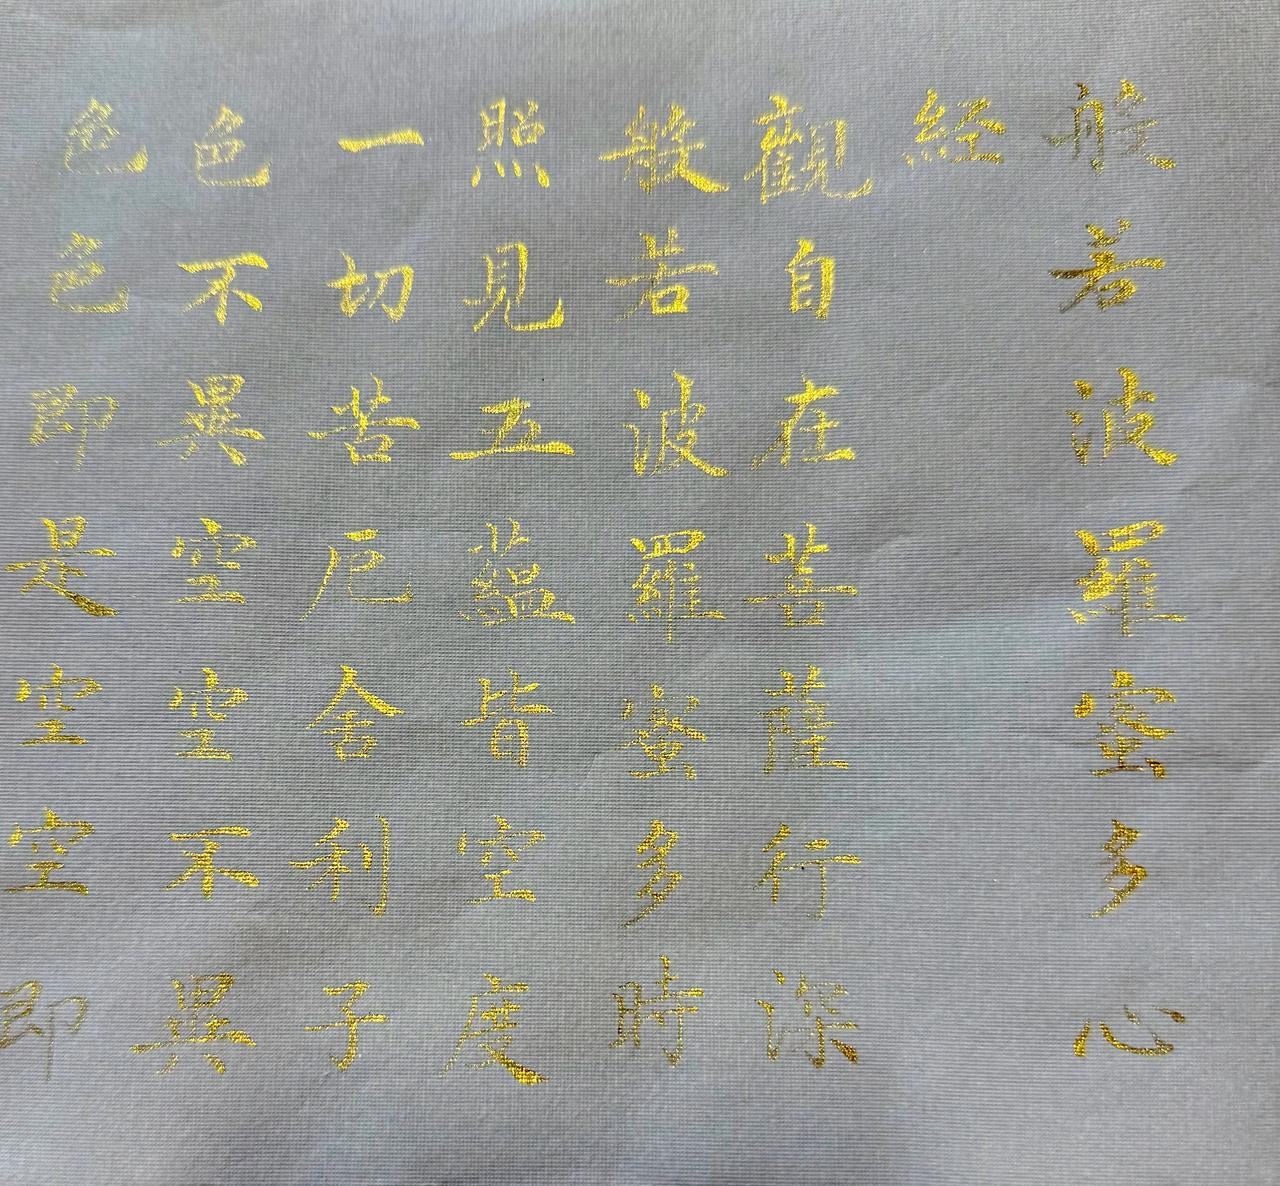 般若波羅蜜多心
経
觀自在菩薩行深
般若波羅蜜多時
照見五蘊皆空度
一切苦厄舍利子
色不異空空不異
色色即是空空即